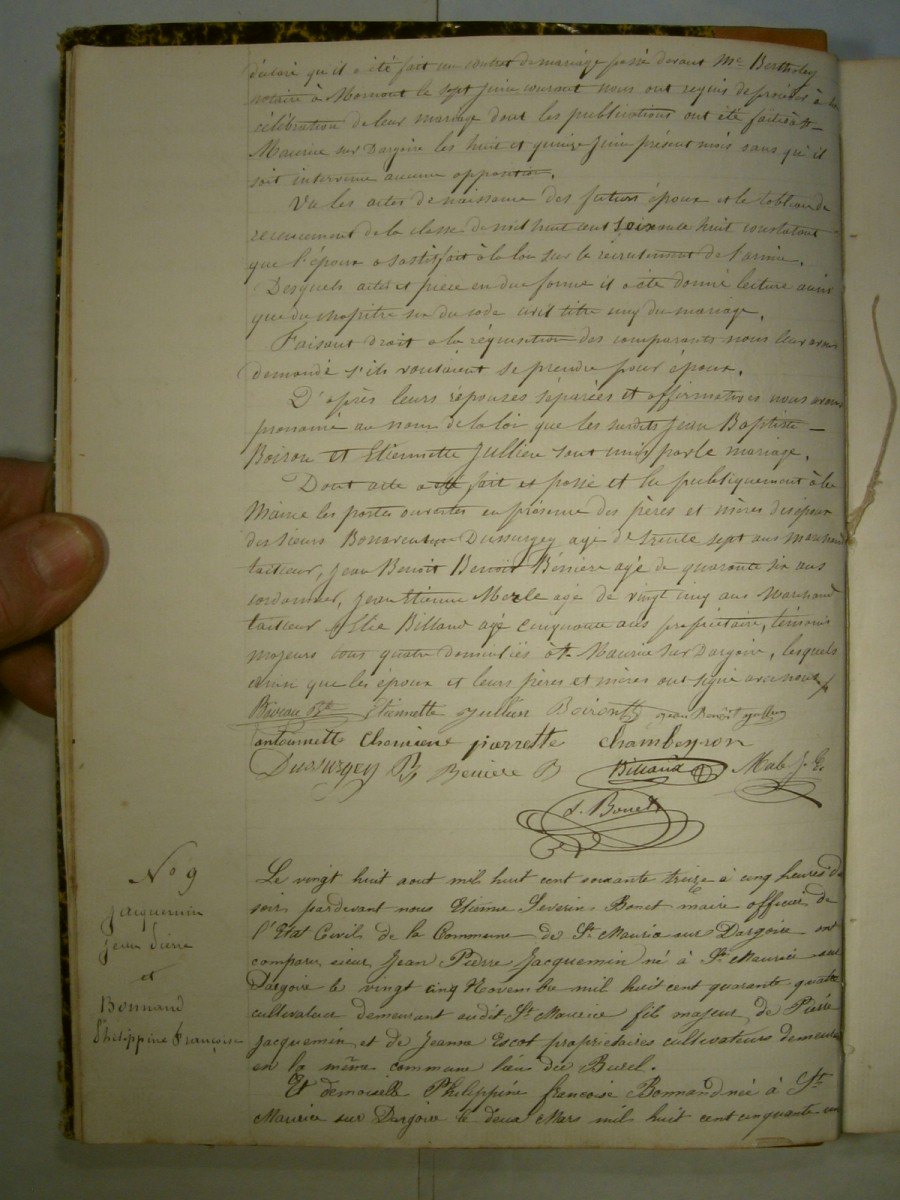 déclaré qu'il a été fait un contrat de mariage passé devant Me Bertholey
notaire à Mornant le sept juin courant nous ont requis de procéder à la
célébration de leur mariage dont les publications ont été faites à St
Maurice sur Dargoire les huit et quinze Juin présent mois sans qu'il
soit intervenu aucune opposition.
Vu les actes de naissance des futurs époux et le tableau de
recensement de la classe de mil huit cent soixante huit constatant
que l'époux a satisfait à la loi sur le recrutement de l'armée.
Desquels actes et pièce en due forme il a été donné lecture ainsi
que du chapitre six du code civil titre cinq du mariage.
Faisant droit a la réquisition des comparants nous leur avons
demandé s'ils voulaient se prendre pour époux.
D'après leurs réponses séparées et affirmatives nous avons
prononcé au nom de la loi que les susdits Jean Baptiste
Boiron et Etiennette Jullien sont unis par le mariage.
Dont acte a été fait et passé et lu publiquement à la
Mairie les portes ouvertes en présence des pères et mères des époux
des sieurs Bonaventure Dussurgey agé de trente sept ans marchand
tailleur, Jean Benoit Benoit Berriere agé de quarante six ans
cordonnier, Jean Etienne Merle agé de vingt cinq ans Marchand
tailleur Elie Billaud agé cinquante ans propriétaire, témoins
majeurs tous quatre domiciliés à St Maurice sur Dargoire, lesquels
ainsi que les époux et leurs pères et mères ont signé avec nous
Etiennette Jullien Boiron jean Benoit jullien
antoinette pierrette chambeyron
Dussurgey Berriere B Billaud J. E.
S. Bonet
No 9
Jacquemin
Jean Pierre
et
Bonnand
Philippine Françoise
Le vingt huit aout mil huit cent soixante treize à cinq heures du
soir pardevant nous Etienne Severin Bonet maire officier de
l'Etat Civil de la Commune de St Maurice sur Dargoire ont
comparu sieur Jean Pierre Jacquemin né à St Maurice sur
Dargoire le vingt cinq Novembre mil huit cent quarante quatre
cultivateur demeurant audit St Maurice fils majeur de Pierre
Jacquemin et de Jeanne Escot proprietaires cultivateurs demeurant
en la même commune lieu du Burel.
Et demoiselle Philippine françoise Bonnand née à St
Maurice sur Dargoire le deux Mars mil huit cent cinquante un